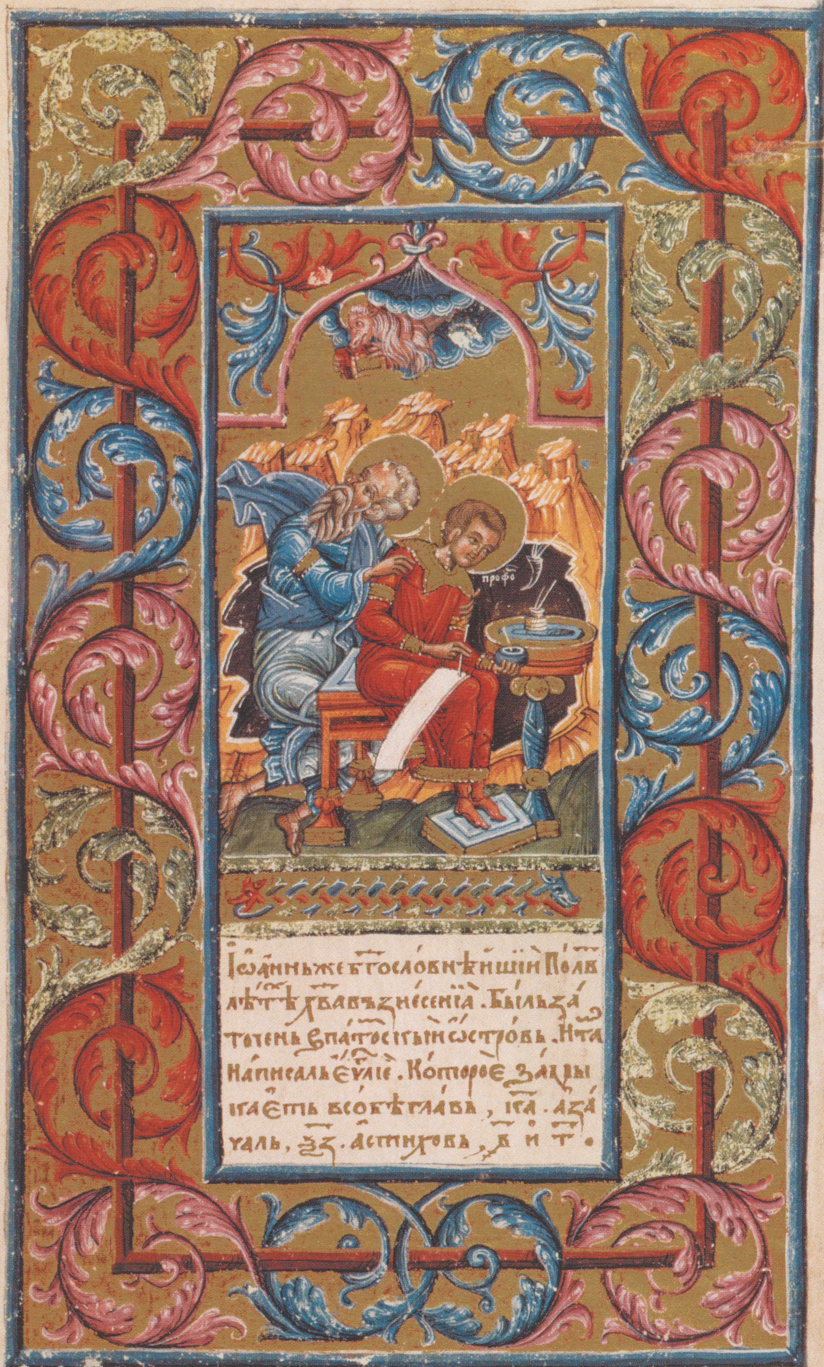 профо
Їѡа́ннъ же бг҃осло́внѣ́йшїй По́л҃в
лѣ́тѣ х҃ва възнесе́нїа̀ . Бы́лъ за́
точенъ в па́тоскїй ѡ҆стро́въ . И та̑
на́писалъ є҆у҃лїе . Ко́торое за́мы
каетъ в со́бѣ гла́въ , к҃а . а҆ за́
чалъ , ѯ҃з . а҆ стихо́въ , ҂в҃ и т҃ .